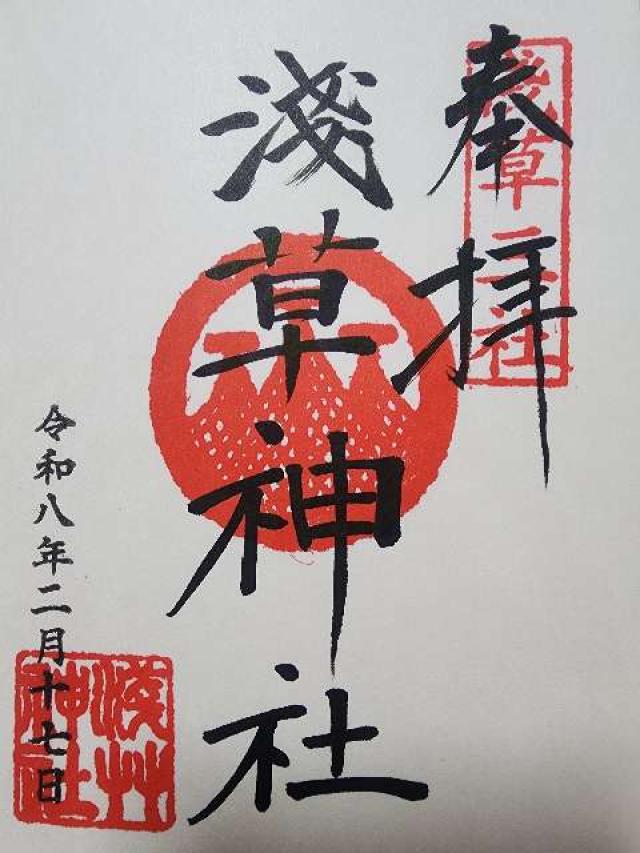 奉拝
淺草三社
淺草神社
令和八年二月十七日
淺草神社